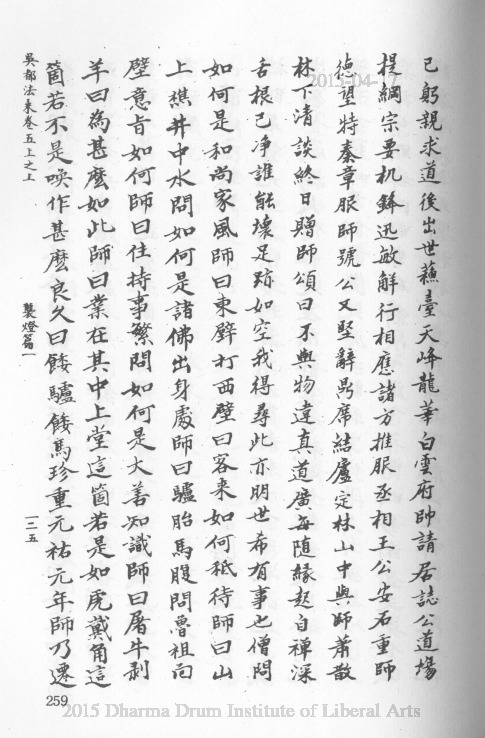 己躬親求道後出世蘓臺天峰龍華白雲府帥請居誌公道場
提綱宗要机鋒迅敏解行相應諸方推服丞相王公安石重師
德望特奏章服師號公又堅辭㫷席結廬定林山中與師蕭散
林下清談終日贈師頌曰不與物違真道廣每随縁起自禅深
舌根已净誰能壞足跡如空我得尋此亦明世希有事也僧問
如何是和尚家風師曰東壁打西壁曰客来如何秪待師曰山
上樵井中水問如何是諸佛出身處師曰驢胎馬腹問魯祖面
壁意旨如何師曰住持事繁問如何是大善知識師曰屠牛剥
羊曰為甚麽如此師曰業在其中上堂這箇若是如虎戴角這
箇若不是喚作甚麽良久曰餧驢餧馬珍重元祐元年師乃遷
吳都法乗卷五上之上
襲燈篇一
一二五
259
2015-04-17
2015 Dharma Drum Institute of Liberal Arts